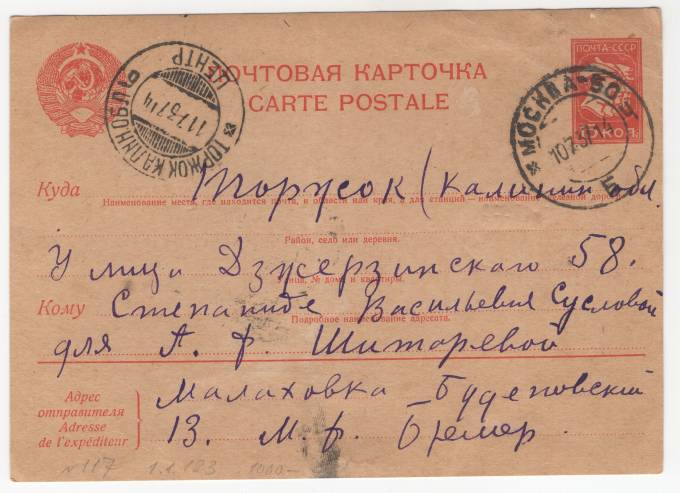 ПОЧТА-СССР
10 КОП.
ПОЧТОВАЯ КАРТОЧКА
CARTE POSTALE
ТОРЖОК КАЛИНОВ ОБЛ
ЦЕНТР
11 7 37 14
МОСКВА-50
10 7 37 14
Куда Торжок (Калинин обл
Наименование места, где находится почта, в области или края, а для станций — наименование железной дороги
Район, село или деревня.
Улица Дзержинского 58.
Улица, № дома и квартиры.
Кому Степаниде Васильевне Сусловой
Подробное наименование адресата.
для А. Ф. Шиторевой
Адрес отправителя
Малаховка - Буденовский
Adresse de l'expéditeur
13. М. Ф. Бремер.
№117 1.1.183 1000-